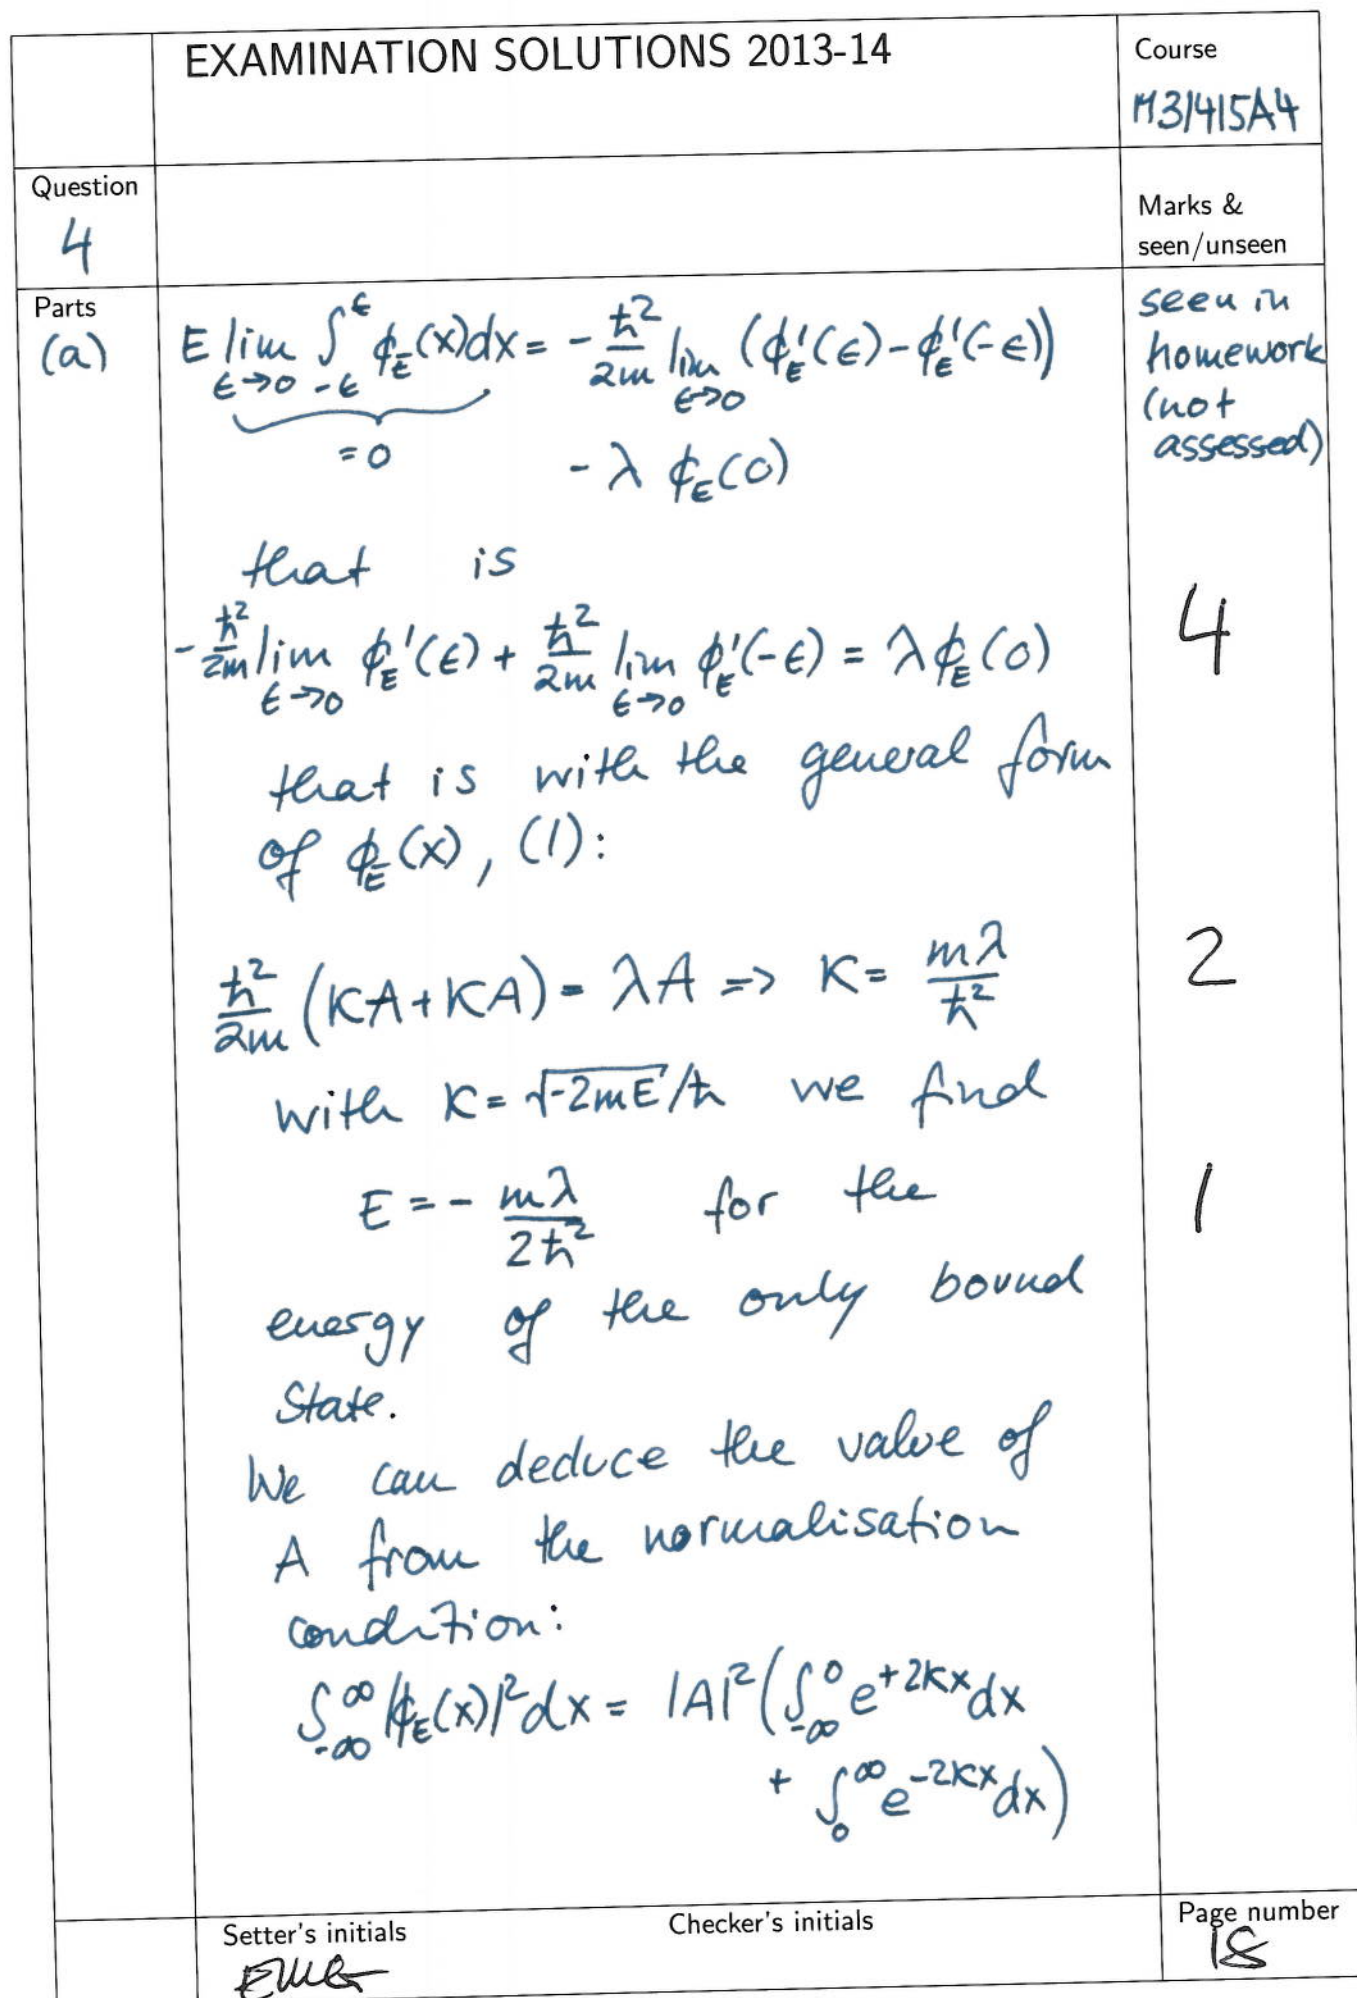 EXAMINATION SOLUTIONS 2013-14
Course
M3/4/5A4
Question
4
Marks &
seen/unseen
Parts
(a)
E lim_{ε→0} ∫_{-ε}^{ε} ϕ_E(x)dx = - ħ²/2m lim_{ε→0} (ϕ_E'(ε) - ϕ_E'(-ε))
= 0
- λ ϕ_E(0)
seen in
homework
(not
assessed)
that is
- ħ²/2m lim_{ε→0} ϕ_E'(ε) + ħ²/2m lim_{ε→0} ϕ_E'(-ε) = λϕ_E(0)
4
that is with the general form
of ϕ_E(x), (1):
ħ²/2m (KA + KA) = λA => K = mλ/ħ²
2
with K = √-2mE/ħ we find
E = - mλ/2ħ² for the
1
energy of the only bound
state.
We can deduce the value of
A from the normalisation
condition:
∫_{-∞}^{∞} |ϕ_E(x)|² dx = |A|² (∫_{-∞}^{0} e^{+2Kx} dx
+ ∫_{0}^{∞} e^{-2Kx} dx)
Setter's initials
Checker's initials
Page number
18